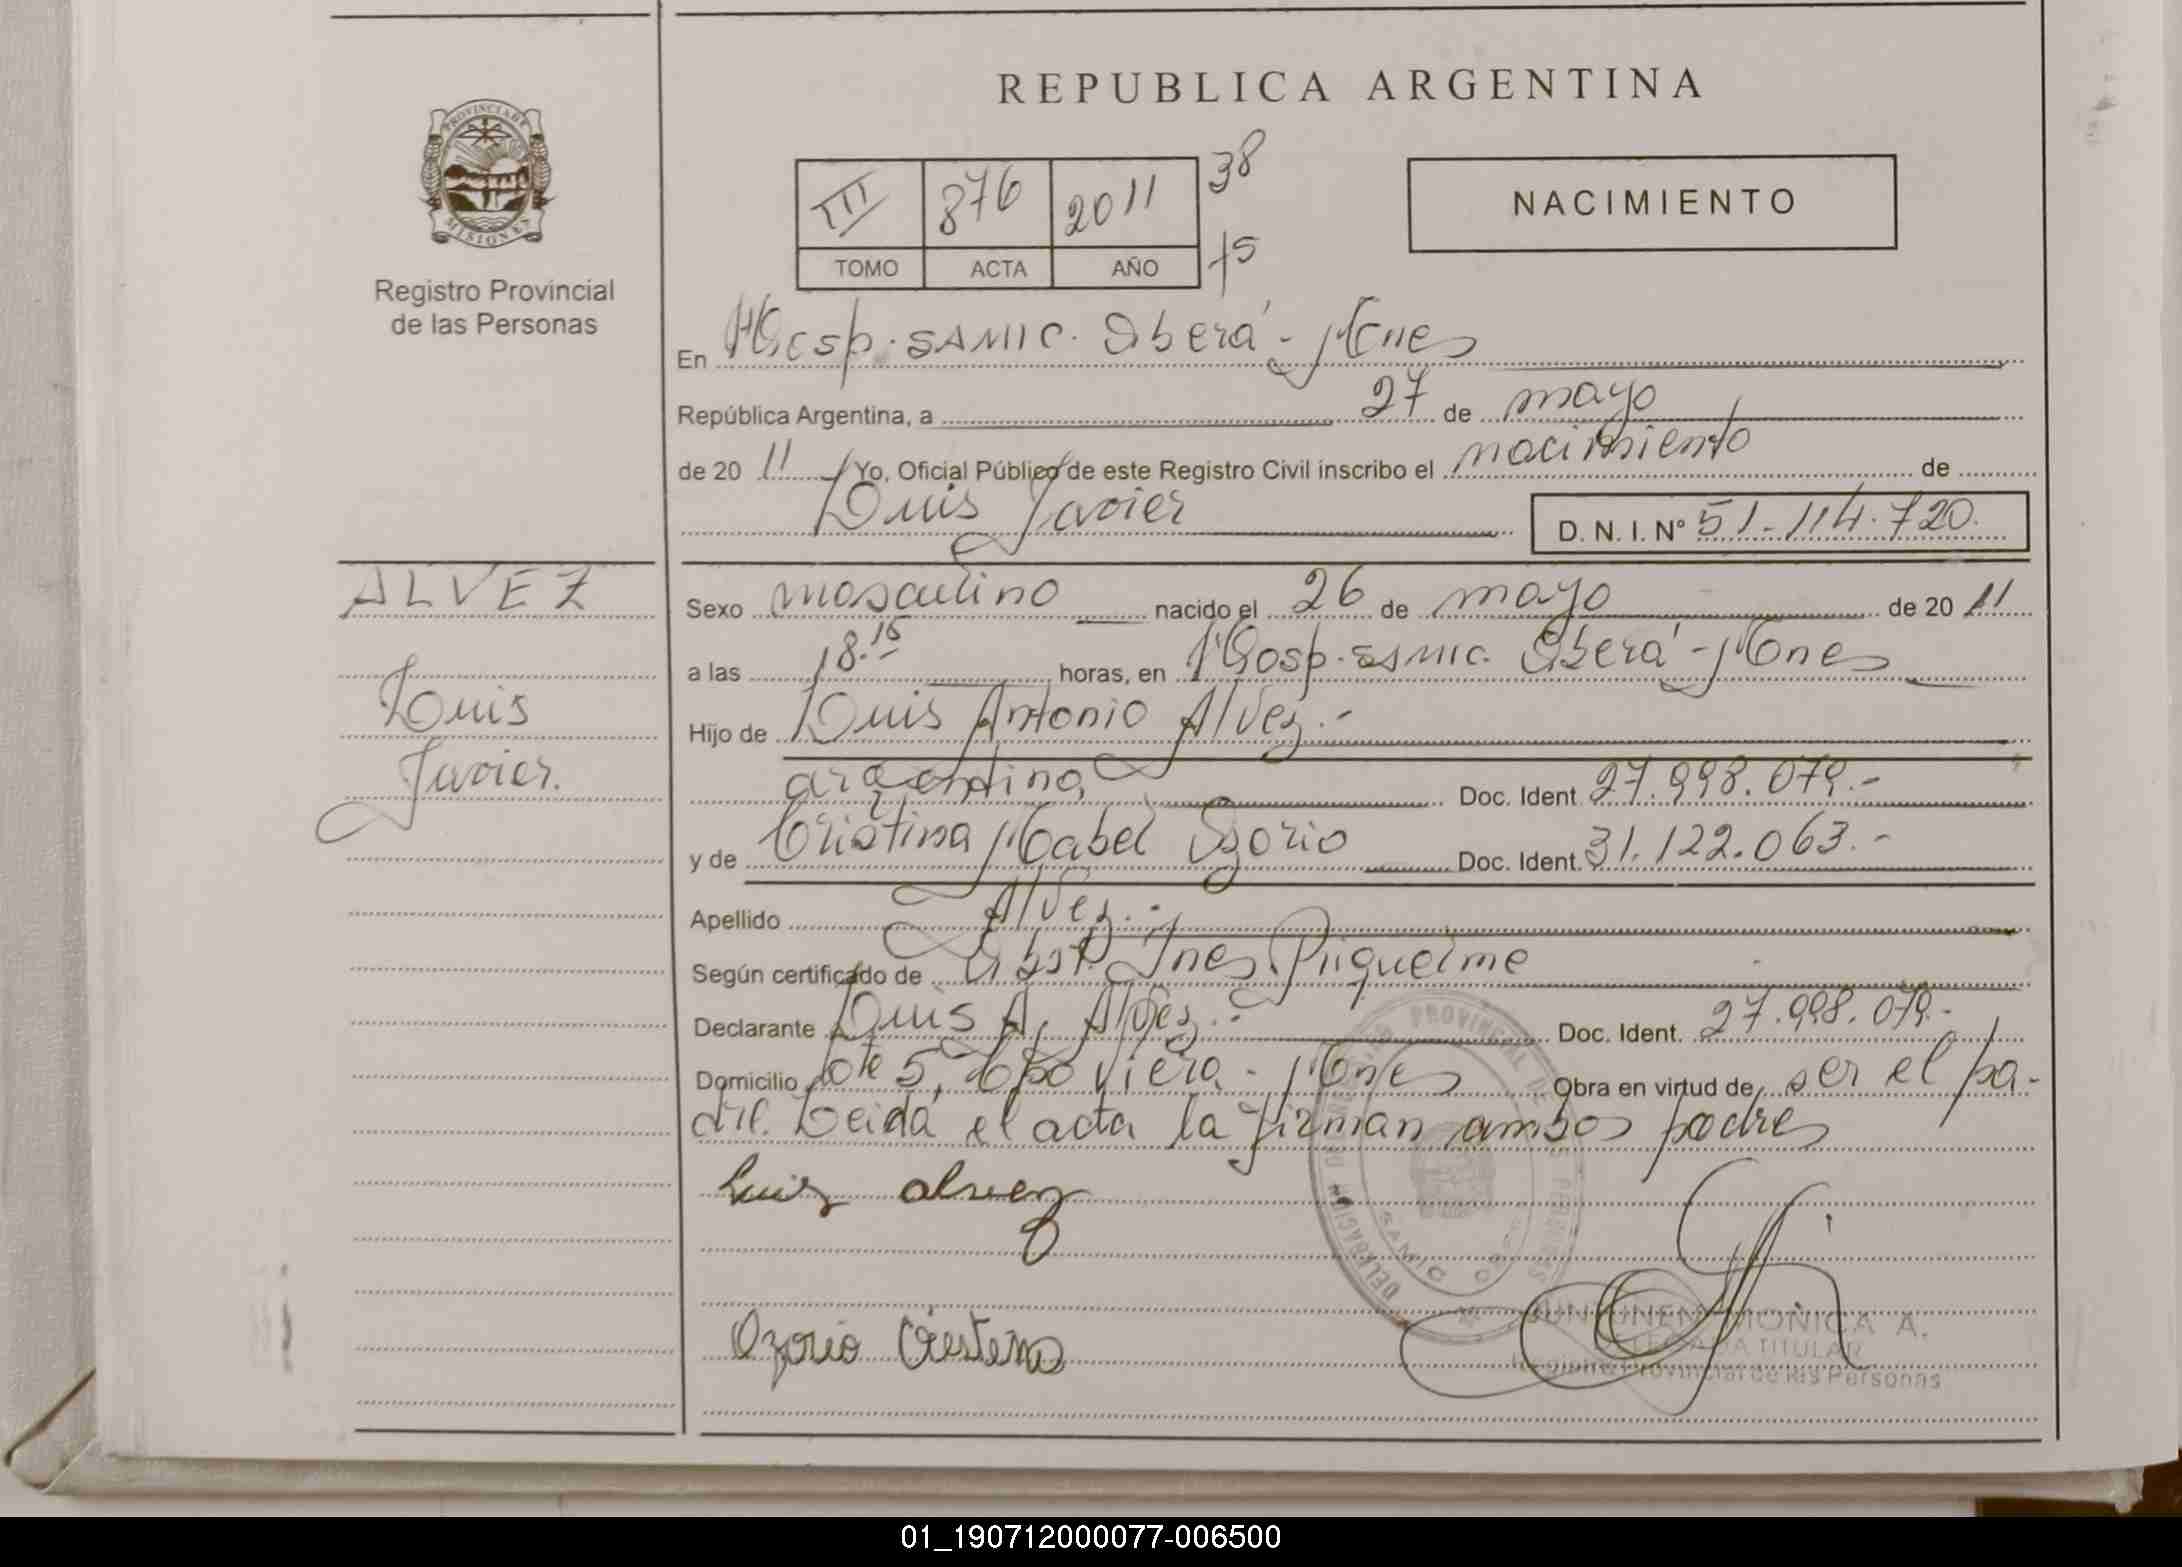 REPUBLICA ARGENTINA
PROVINCIA DE MISIONES
Registro Provincial
de las Personas
III 876 2011 38
TOMO ACTA AÑO 75
NACIMIENTO
En Hosp. SAMIC. Oberá - Mnes
República Argentina, a 27 de mayo
de 20 11 Yo, Oficial Público de este Registro Civil inscribo el nacimiento de
Luis Javier D. N. I. Nº 51.114.720.
ALVEZ
Luis
Javier.
Sexo masculino nacido el 26 de mayo de 20 11
a las 18.15 horas, en Hosp. SAMIC. Oberá - Mnes
Hijo de Luis Antonio Alvez.-
argentino, Doc. Ident. 27.998.079.-
y de Cristina Mabel Ozorio Doc. Ident. 31.122.063.-
Apellido Alvez.-
Según certificado de Obst. Ines Riquelme
Declarante Luis A. Alvez.- Doc. Ident. 27.998.079.-
Domicilio Lote 5, Cpo Viera - Mnes Obra en virtud de ser el pa-
dre. Leida el acta la firman ambos padres
Luis alvez
Ozorio Cristina
MONICA A.
TITULAR
Registro Provincial de las Personas
01_190712000077-006500